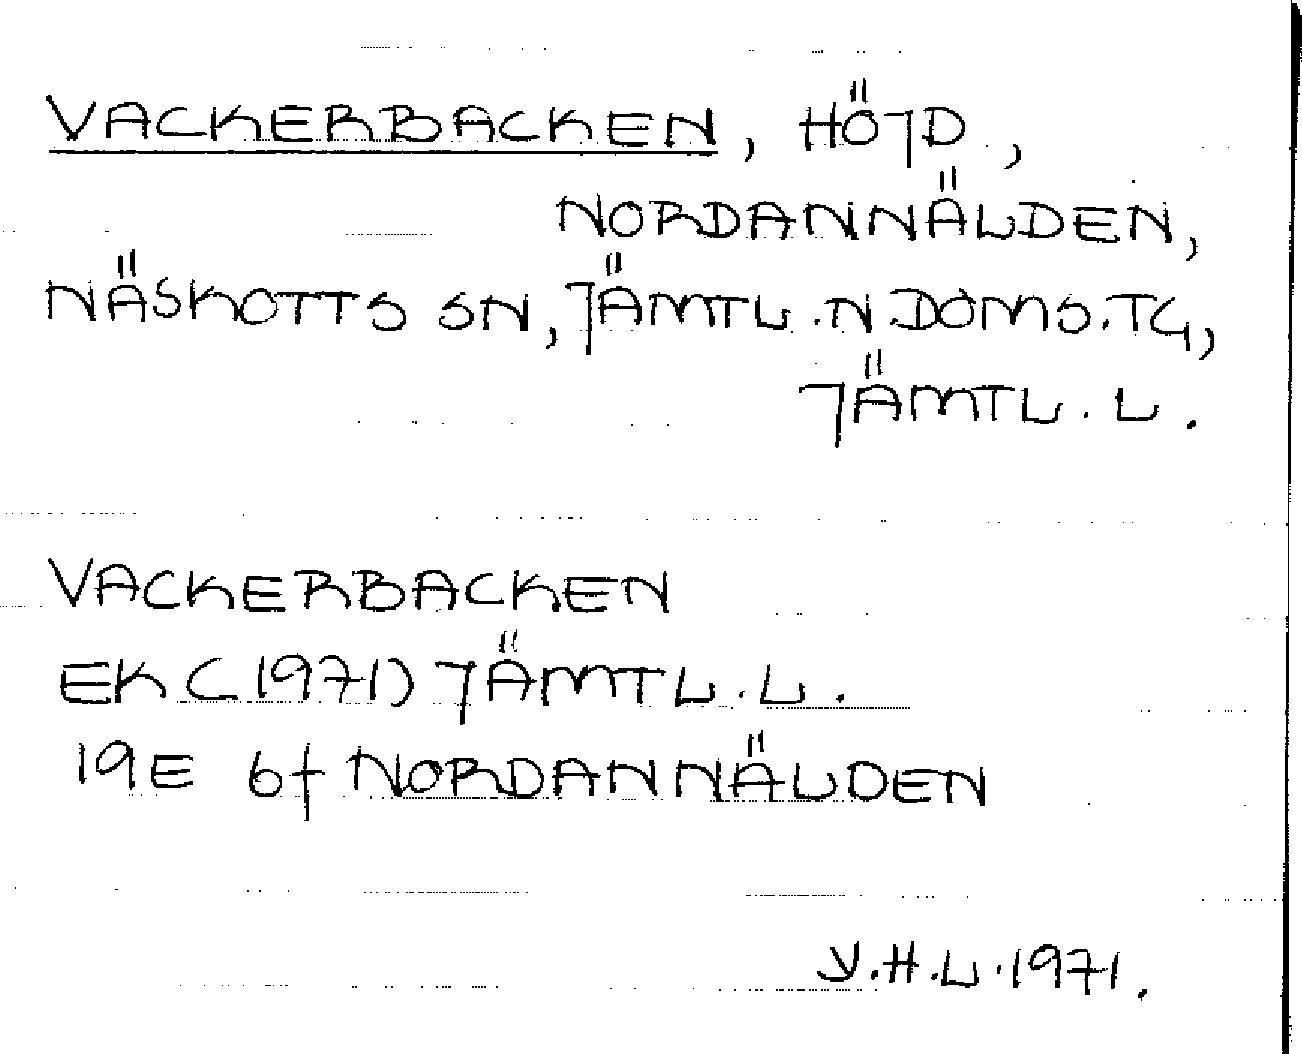 VACKERBACKEN, HÖJD,
NORDANNÄLDEN,
NÄSKOTTS SN, JÄMTL.N.DOMS.TG,
JÄMTL.L.
VACKERBACKEN
EK (1971) JÄMTL.L.
19E 6f NORDANNÄLDEN
Y.H.L.1971.